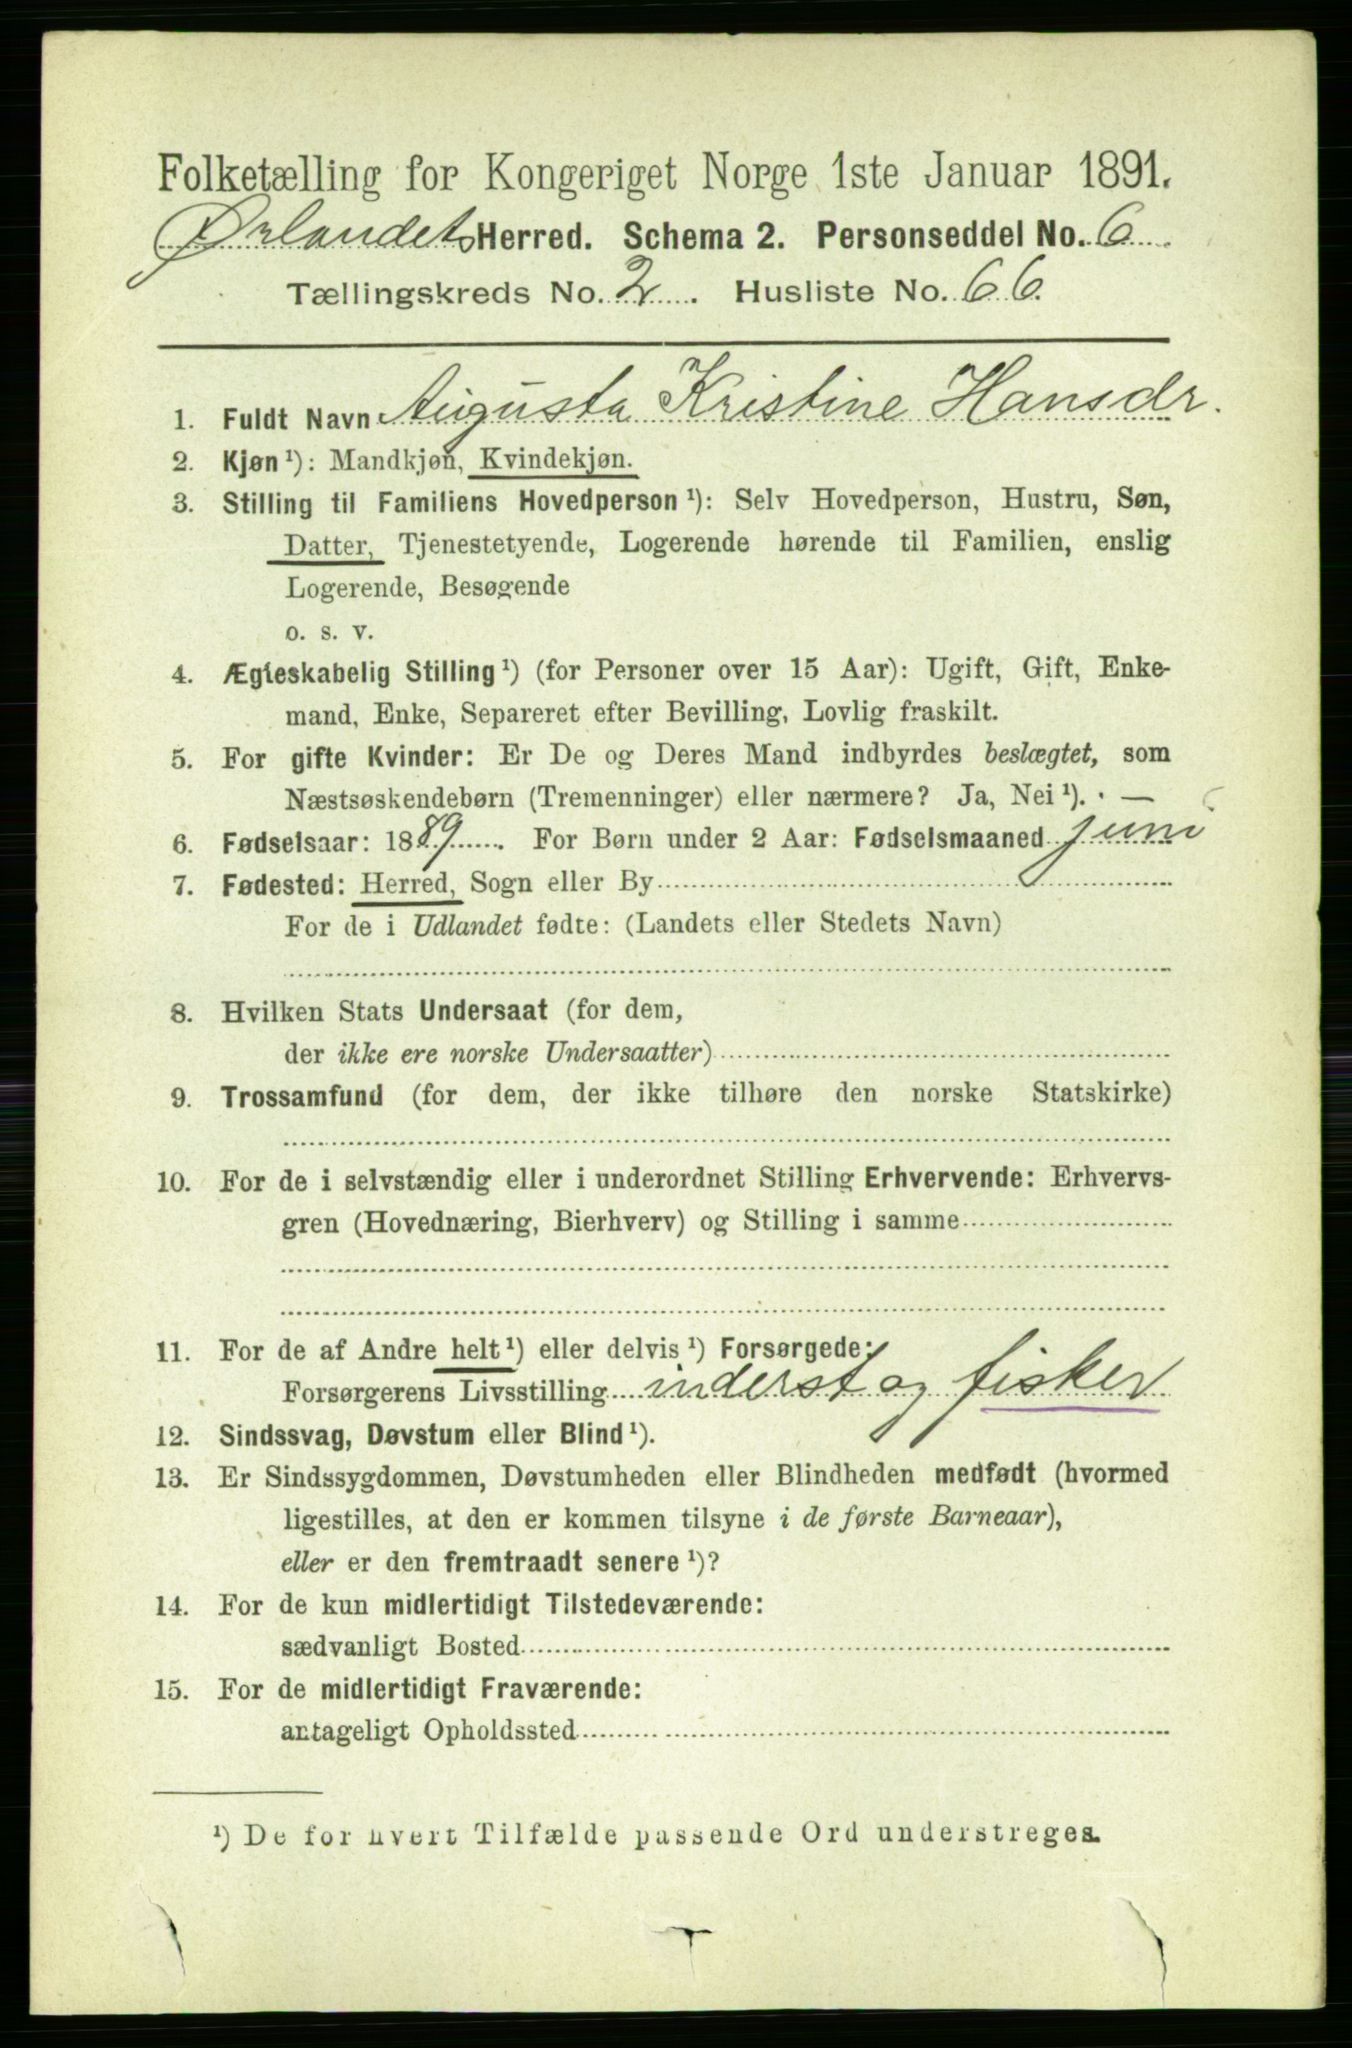 Folketælling for Kongeriget Norge 1ste Januar 1891.
Ørlandets Herred. Schema 2. Personseddel No. 6
Tællingskreds No. 2. Husliste No. 66.
1. Fuldt Navn Augusta Kristine Hansdr.
2. Kjøn ¹): Mandkjøn, Kvindekjøn.
3. Stilling til Familiens Hovedperson ¹): Selv Hovedperson, Hustru, Søn,
Datter, Tjenestetyende, Logerende hørende til Familien, enslig
Logerende, Besøgende
o. s. v.
4. Ægteskabelig Stilling ¹) (for Personer over 15 Aar): Ugift, Gift, Enke-
mand, Enke, Separeret efter Bevilling, Lovlig fraskilt.
5. For gifte Kvinder: Er De og Deres Mand indbyrdes beslægtet, som
Næstsøskendebørn (Tremenninger) eller nærmere? Ja, Nei ¹). —
6. Fødselsaar: 1889. For Børn under 2 Aar: Fødselsmaaned juni
7. Fødested: Herred, Sogn eller By
For de i Udlandet fødte: (Landets eller Stedets Navn)
8. Hvilken Stats Undersaat (for dem,
der ikke ere norske Undersaatter)
9. Trossamfund (for dem, der ikke tilhøre den norske Statskirke)
10. For de i selvstændig eller i underordnet Stilling Erhvervende: Erhvervs-
gren (Hovednæring, Bierhverv) og Stilling i samme
11. For de af Andre helt ¹) eller delvis ¹) Forsørgede:
Forsørgerens Livsstilling inderst og fisker
12. Sindssvag, Døvstum eller Blind ¹).
13. Er Sindssygdommen, Døvstumheden eller Blindheden medfødt (hvormed
ligestilles, at den er kommen tilsyne i de første Barneaar),
eller er den fremtraadt senere ¹)?
14. For de kun midlertidigt Tilstedeværende:
sædvanligt Bosted
15. For de midlertidigt Fraværende:
antageligt Opholdssted
¹) De for hvert Tilfælde passende Ord understreges.